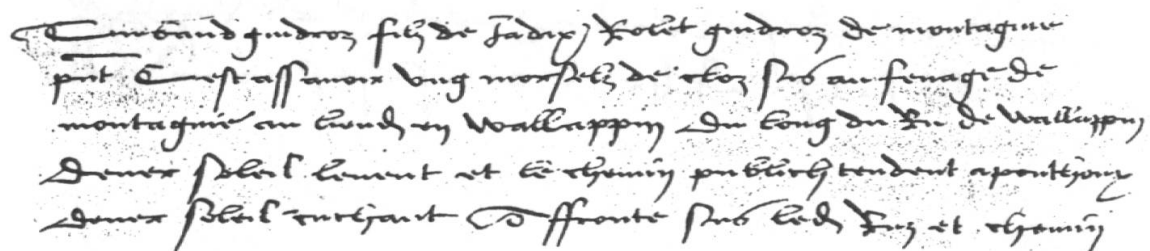 Turband gindroz filz de Jadix Rolet gindroz de montagnie
pnt C'est assavoir ung morselz de cloz sus au fenage de
montagnie au lieud en wallappin Du long du Ru de wallappin
Dever soleil levent et le chemin publich tendent a ponthouz
dever soleil cuchant Et ffronte sus led Ruz et chemin